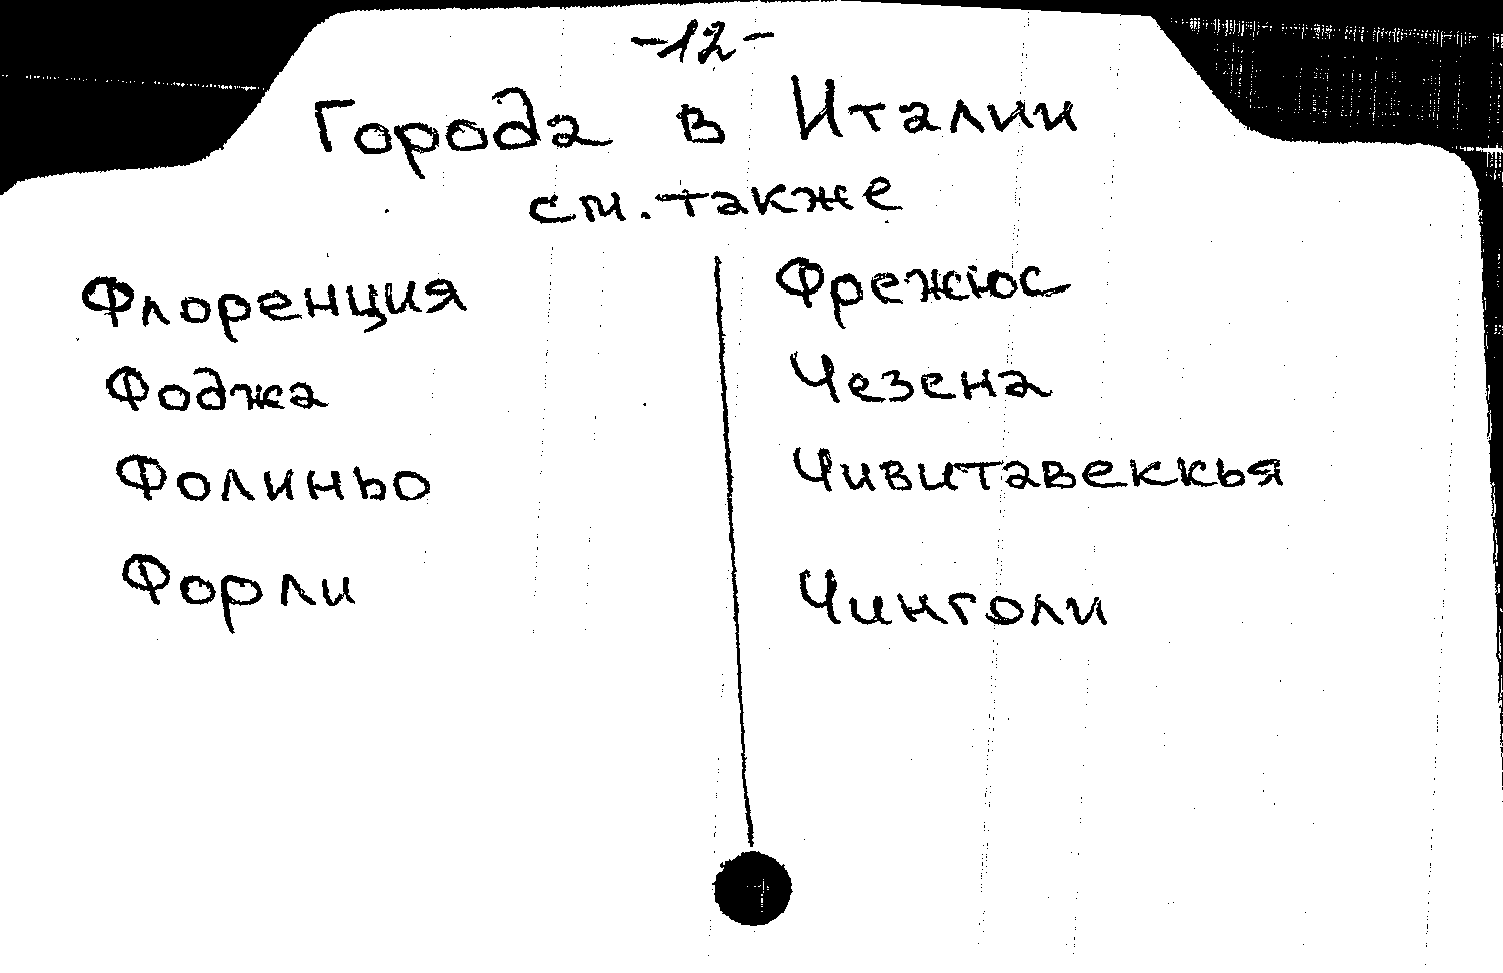 -12-
Города в Италии
см. также
Флоренция
Фоджа
Фолиньо
Форли
Фрежюс
Чезена
Чивитавеккья
Чинголи